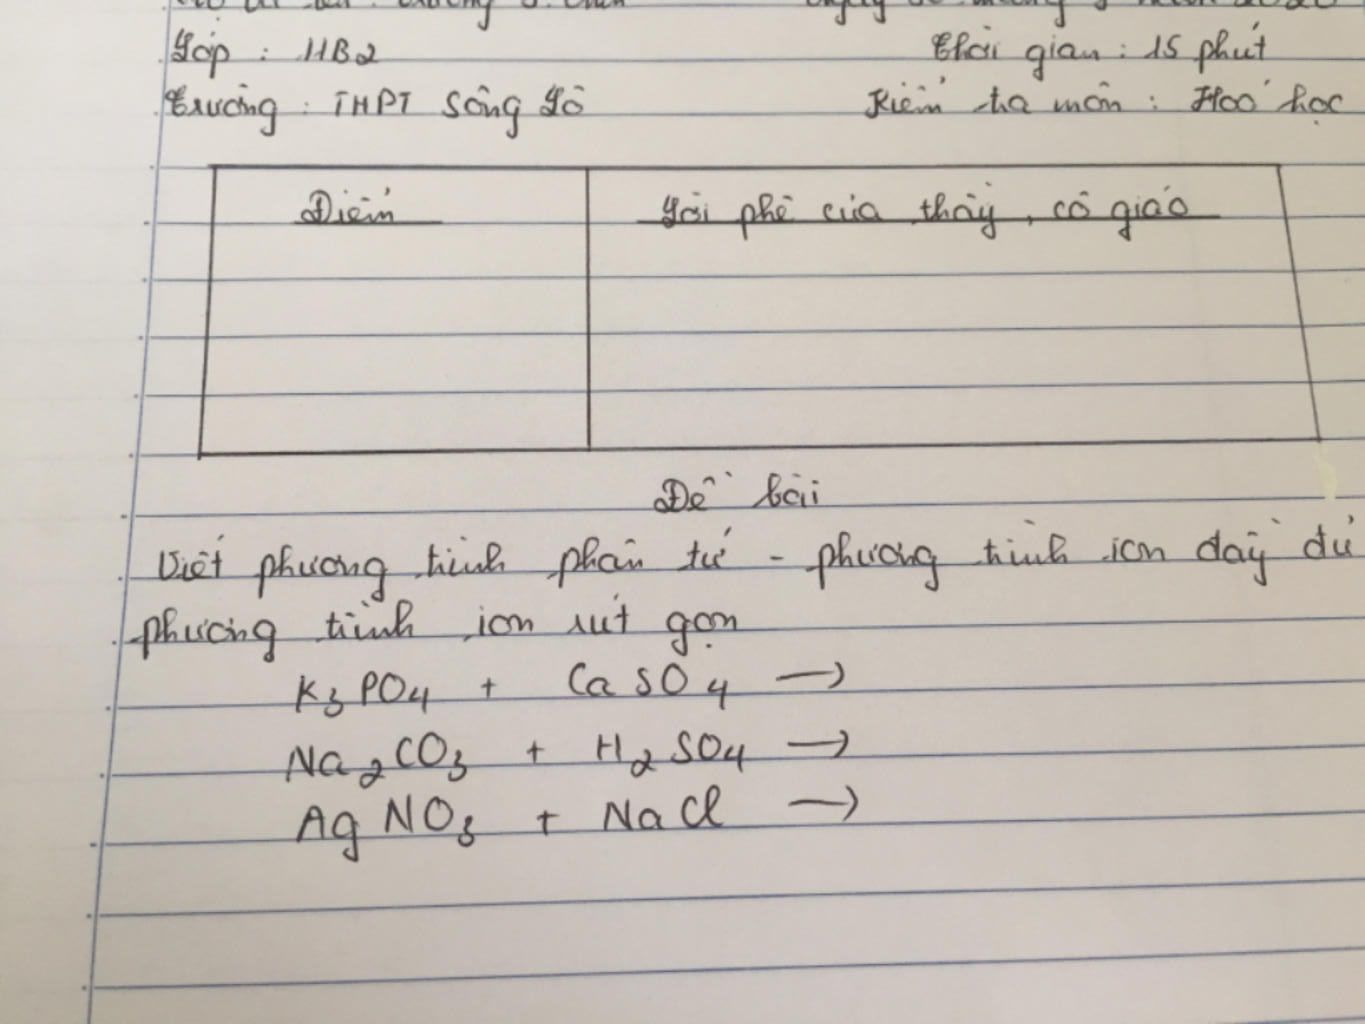 Lớp : 11B2
Thời gian : 15 phút
Trường : THPT Sông Lô
Kiểm tra môn : Hoá học
Điểm
Lời phê của thầy, cô giáo
Đề bài
Viết phương trình phân tử - phương trình ion đầy đủ
phương trình ion rút gọn
K₃PO₄ + CaSO₄ →
Na₂CO₃ + H₂SO₄ →
AgNO₃ + NaCl →